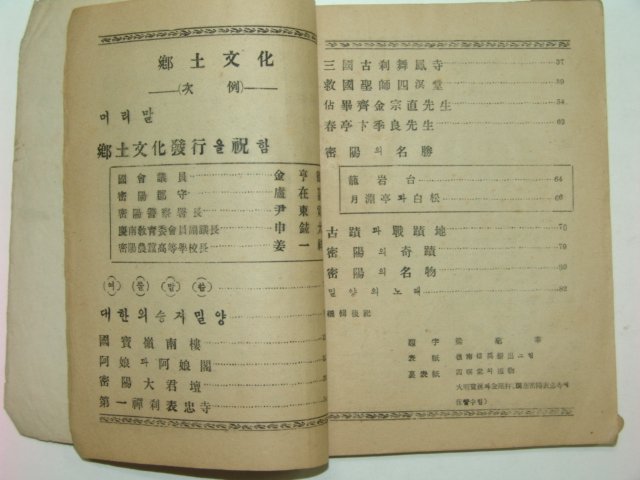 鄕土文化
(次 例)
머리말
鄕土文化發行을祝함
國會議員 金亨
密陽郡守 盧在
密陽警察署長 尹東
慶南敎育委會員副議長 申
密陽農蠶高等學校長 姜一
대한의승지밀양
國寶嶺南樓
阿娘과阿娘閣
密陽大君壇
第一禪刹表忠寺
三國古刹舞鳳寺 37
救國聖師四溟堂 39
佔畢齊金宗直先生 54
春亭卞季良先生 62
密陽의名勝
龍岩台 64
月淵亭과白松 66
古蹟과戰蹟地 76
密陽의奇蹟 79
密陽의名物 80
밀양의노래 82
編輯後記
題字
表紙 嶺南樓
裏表紙 四溟堂의遺物